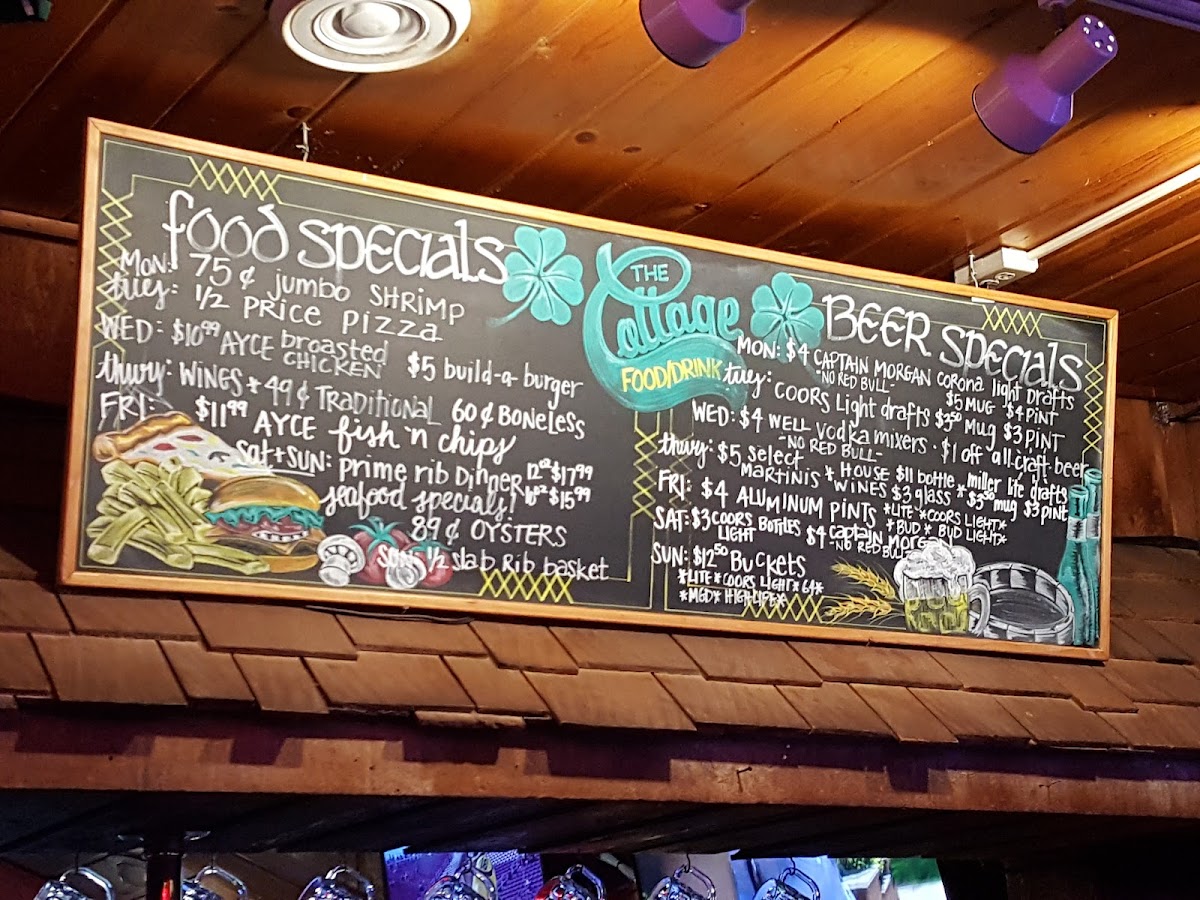 food specials
MON: 75¢ jumbo SHRIMP
tues: 1/2 PRICE PIZZA
WED: $10⁹⁹ AYCE broasted CHICKEN $5 build-a-burger
thurs: WINGS * 49¢ TRADITIONAL 60¢ BONELESS
FRI: $11⁹⁹ AYCE fish 'n chips
sat+SUN: prime rib DINNER 12oz $17⁹⁹
10oz $15⁹⁹
seafood specials!
89¢ OYSTERS
SUN: 1/2 slab Rib basket
THE
Cottage
FOOD/DRINK
BEER specials
MON: $4 CAPTAIN MORGAN corona light drafts
-NO RED BULL- $5 MUG $4 PINT
tues: COORS Light drafts $3⁵⁰ Mug $3 PINT
WED: $4 WELL vodka mixers · $1 off all craft beer
-NO RED BULL-
thurs: $5 select MARTINIS * HOUSE WINES $11 bottle $3 glass * miller lite drafts $3⁵⁰ mug $3 PINT
FRI: $4 ALUMINUM PINTS *LITE*COORS LIGHT*
*BUD * BUD LIGHT*
SAT: $3 COORS LIGHT BOTTLES $4 captain MORGAN
-NO RED BULL-
SUN: $12⁵⁰ BUCKETS
*LITE*COORS LIGHT*64*
*MGD* HIGHLIFE*